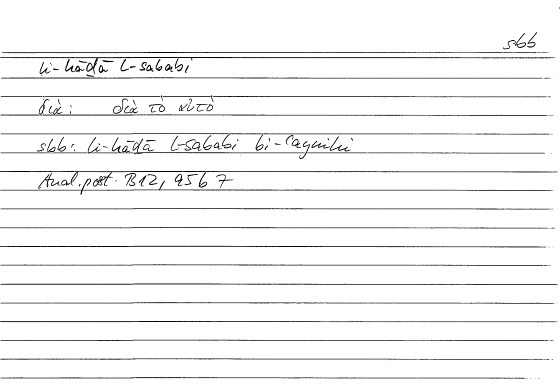 sbb
li-hāḏā l-sababi
διά: διὰ τὸ αὐτό
sbb: li-hāḏā l-sababi bi-ʿaynihi
Anal. post. B12, 95b 7